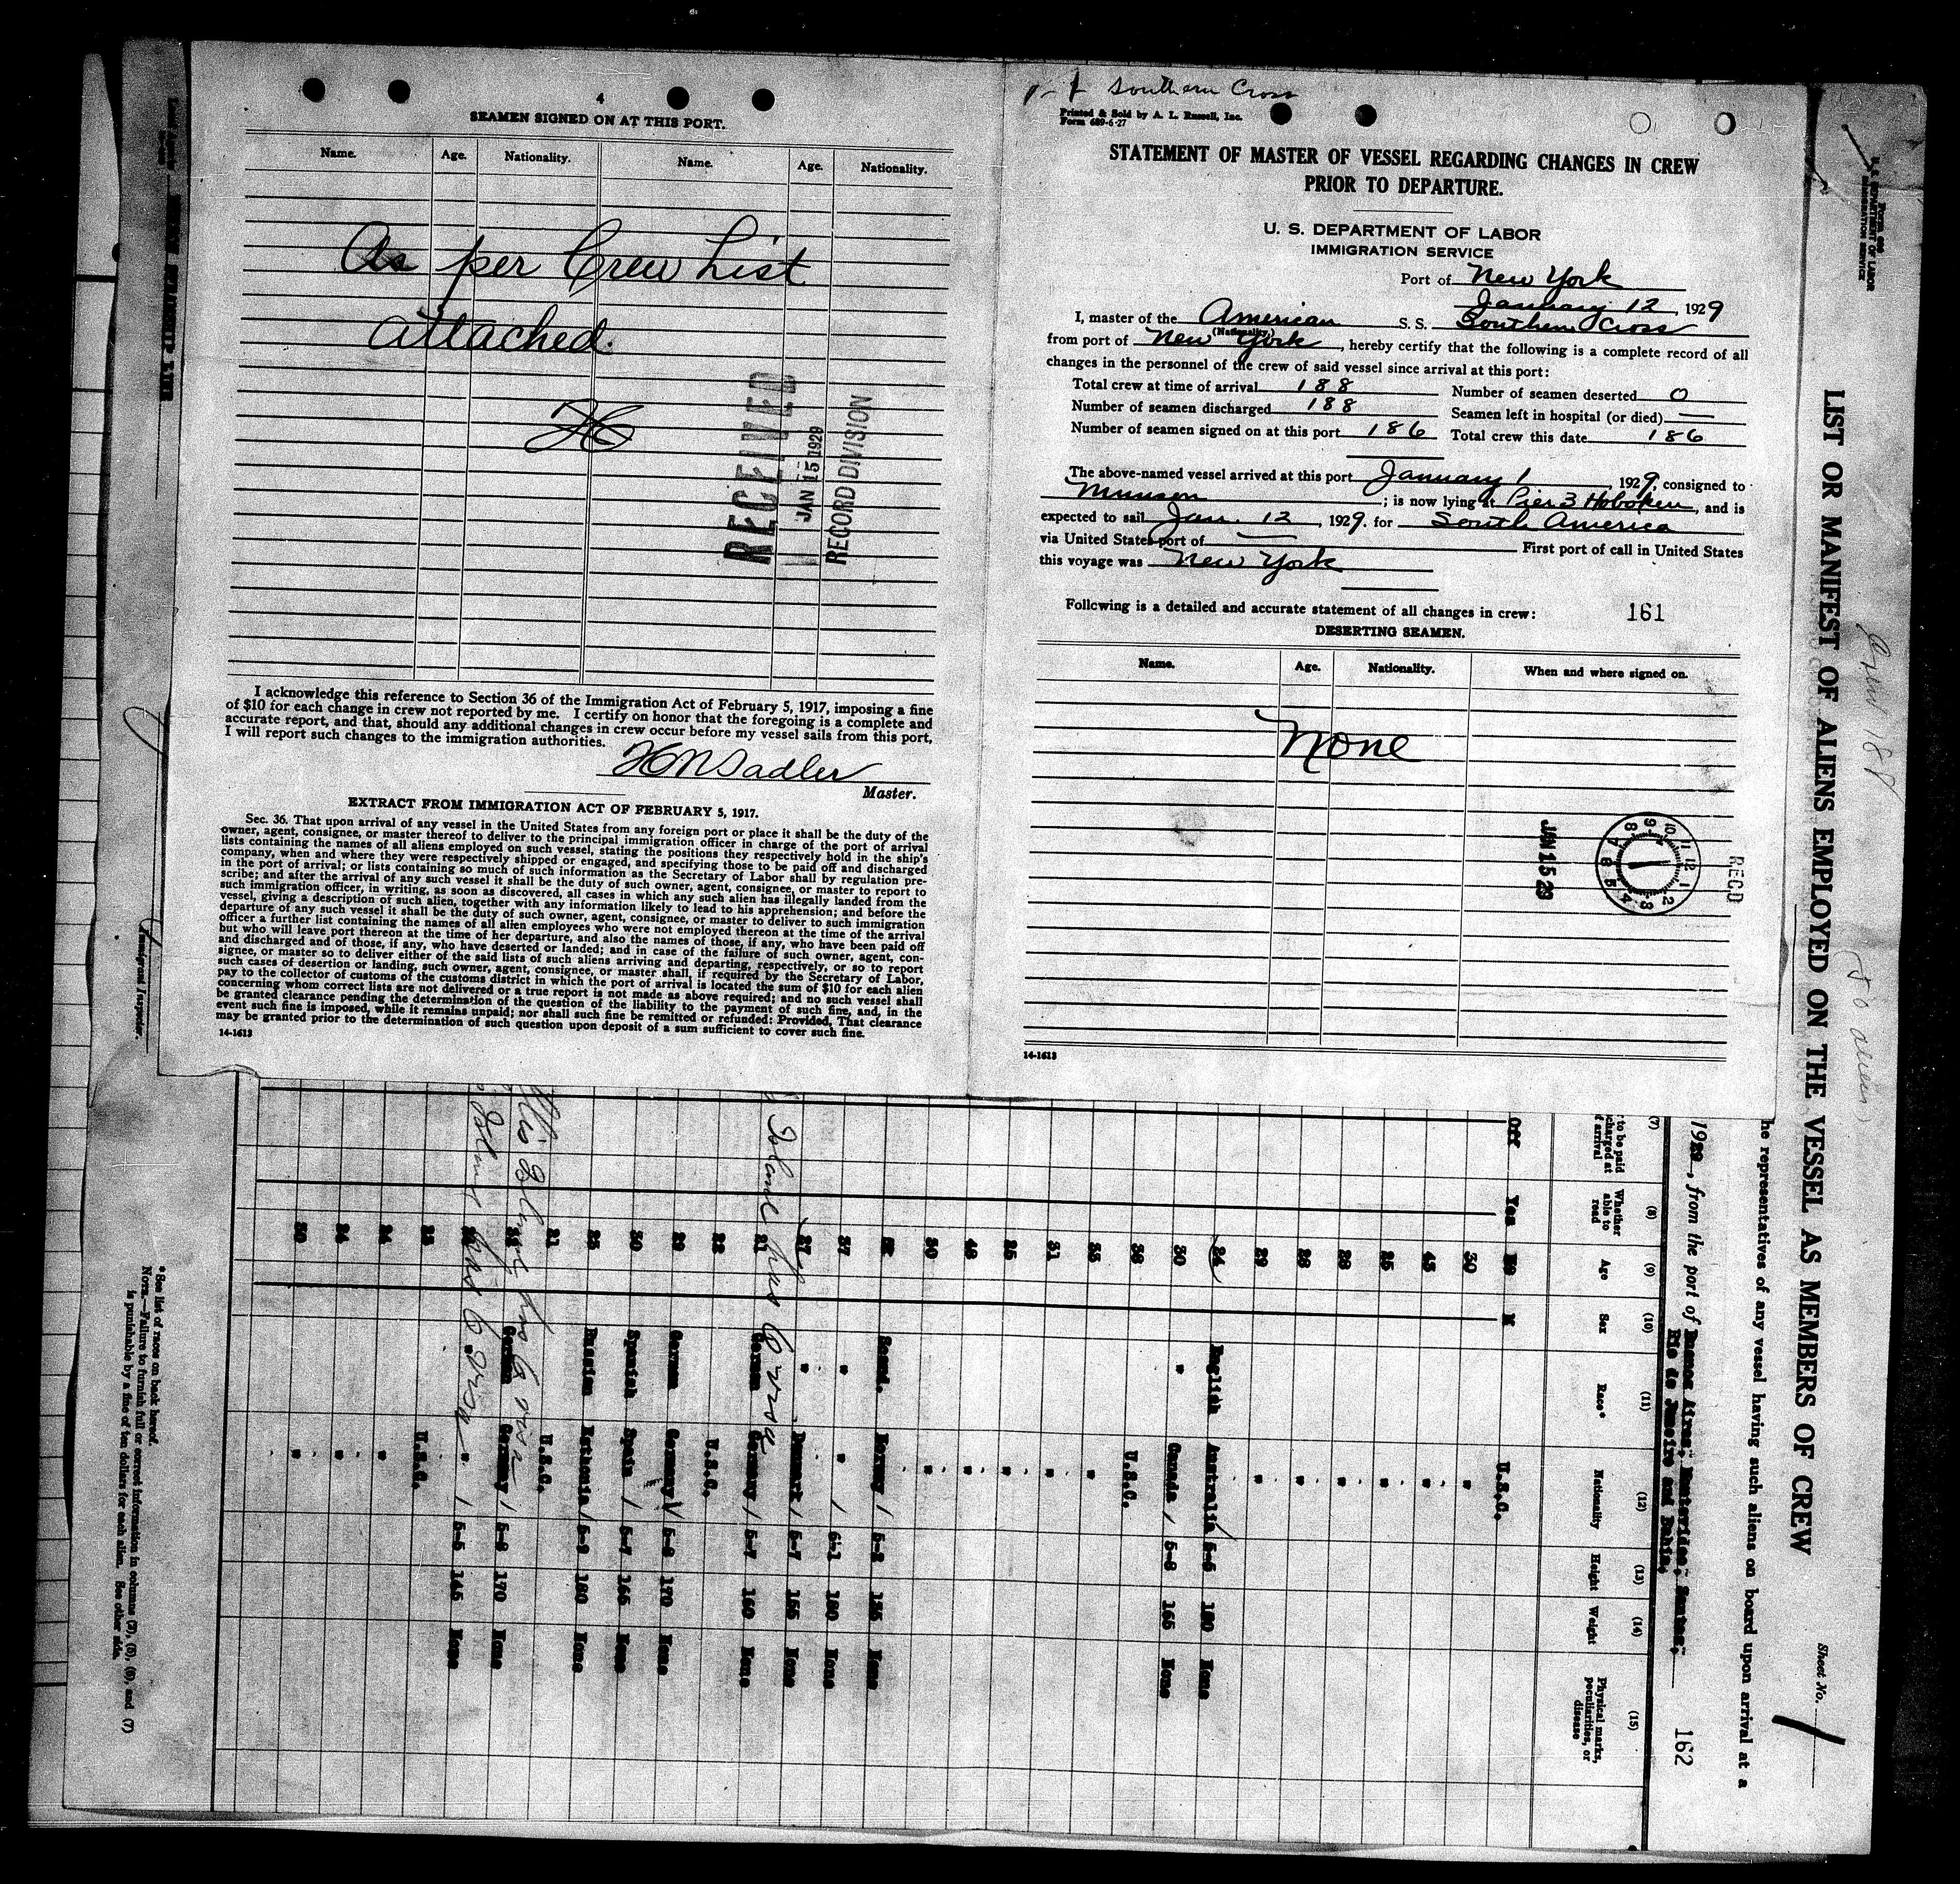 4
SEAMEN SIGNED ON AT THIS PORT.
Name. Age. Nationality. Name. Age. Nationality.
As per Crew List
attached.
RECEIVED
JAN 15 1929
RECORD DIVISION
I acknowledge this reference to Section 36 of the Immigration Act of February 5, 1917, imposing a fine
of $10 for each change in crew not reported by me. I certify on honor that the foregoing is a complete and
accurate report, and that, should any additional changes in crew occur before my vessel sails from this port,
I will report such changes to the immigration authorities.
H N Sadler
Master.
EXTRACT FROM IMMIGRATION ACT OF FEBRUARY 5, 1917.
Sec. 36. That upon arrival of any vessel in the United States from any foreign port or place it shall be the duty of the
owner, agent, consignee, or master thereof to deliver to the principal immigration officer in charge of the port of arrival
lists containing the names of all aliens employed on such vessel, stating the positions they respectively hold in the ship's
company, when and where they were respectively shipped or engaged, and specifying those to be paid off and discharged
in the port of arrival; or lists containing so much of such information as the Secretary of Labor shall by regulation pre-
scribe; and after the arrival of any such vessel it shall be the duty of such owner, agent, consignee, or master to report to
such immigration officer, in writing, as soon as discovered, all cases in which any such alien has illegally landed from the
vessel, giving a description of such alien, together with any information likely to lead to his apprehension; and before the
departure of any such vessel it shall be the duty of such owner, agent, consignee, or master to deliver to such immigration
officer a further list containing the names of all alien employees who were not employed thereon at the time of the arrival
but who will leave port thereon at the time of her departure, and also the names of those, if any, who have been paid off
and discharged and of those, if any, who have deserted or landed; and in case of the failure of such owner, agent, con-
signee, or master so to deliver either of the said lists of such aliens arriving and departing, respectively, or so to report
such cases of desertion or landing, such owner, agent, consignee, or master shall, if required by the Secretary of Labor,
pay to the collector of customs of the customs district in which the port of arrival is located the sum of $10 for each alien
concerning whom correct lists are not delivered or a true report is not made as above required; and no such vessel shall
be granted clearance pending the determination of the question of the liability to the payment of such fine, and, in the
event such fine is imposed, while it remains unpaid; nor shall such fine be remitted or refunded: Provided, That clearance
may be granted prior to the determination of such question upon deposit of a sum sufficient to cover such fine.
14-1613
Southern Cross
Printed & Sold by A. L. Russell, Inc.
Form 689-6-27
STATEMENT OF MASTER OF VESSEL REGARDING CHANGES IN CREW
PRIOR TO DEPARTURE.
U. S. DEPARTMENT OF LABOR
IMMIGRATION SERVICE
Port of New York
January 12, 1929
I, master of the American S. S. Southern Cross
(Nationality)
from port of New York, hereby certify that the following is a complete record of all
changes in the personnel of the crew of said vessel since arrival at this port:
Total crew at time of arrival 188 Number of seamen deserted 0
Number of seamen discharged 188 Seamen left in hospital (or died) —
Number of seamen signed on at this port 186 Total crew this date 186
The above-named vessel arrived at this port January 1, 1929, consigned to
Munson; is now lying at Pier 3 Hoboken, and is
expected to sail Jan. 12, 1929. for South America
via United States port of — First port of call in United States
this voyage was New York
Following is a detailed and accurate statement of all changes in crew: 161
DESERTING SEAMEN.
Name. Age. Nationality. When and where signed on.
None
REC'D
JAN 15 29
14-1613
U. S. DEPARTMENT OF LABOR
IMMIGRATION SERVICE
LIST OR MANIFEST OF ALIENS EMPLOYED ON THE VESSEL AS MEMBERS OF CREW
Sheet No. 1
he representatives of any vessel having such aliens on board upon arrival at a
1929, from the port of Buenos Aires, Montevideo, Santos,
Rio de Janeiro and Bahia.
162
(7) (8) (9) (10) (11) (12) (13) (14) (15)
Whether able to read
Age
Sex
Race*
Nationality
Height
Weight
Physical marks, peculiarities, or disease
Off Yes M U.S.C.
30 "
43 "
25 "
28 "
28 "
29 "
24 English Australia 5-6 180 None
30 " Canada 5-8 165 None
38 U.S.C.
Scand. Norway None
37 " " 6-1 180 None
27 " Denmark 5-7 155 None
21 German Germany 5-7 160 None
U.S.C.
29 German Germany 5-8 170 None
30 Spanish Spain 5-7 None
25 Russian Esthonia 5-9 180 None
21 U.S.C.
German Germany 5-8 170 None
" " 5-5 145 None
U.S.C.
Immigrant Inspector.
* See list of races on back hereof.
NOTE.—Failure to furnish full or correct information in columns (2), (5), (6), and (7)
is punishable by a fine of ten dollars for each alien. See other side.